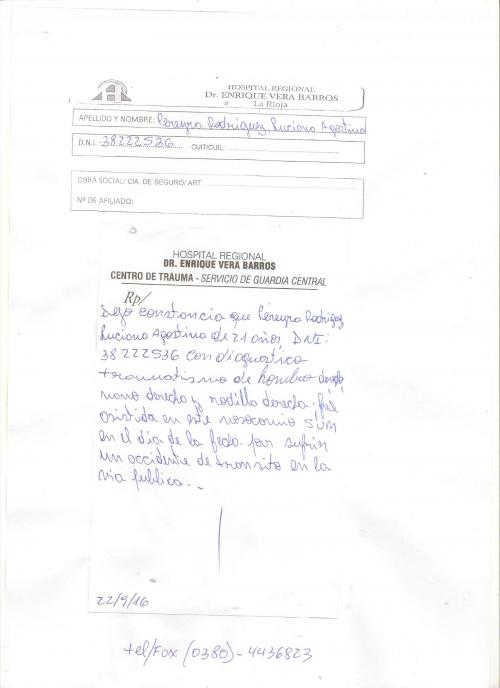 HOSPITAL REGIONAL
Dr. ENRIQUE VERA BARROS
La Rioja
APELLIDO Y NOMBRE: Pereyra Rodriguez, Luciano Agostino
D.N.I.: 38222536 CUIT/CUIL:
OBRA SOCIAL/ CIA. DE SEGURO/ ART:
Nº DE AFILIADO:
HOSPITAL REGIONAL
DR. ENRIQUE VERA BARROS
CENTRO DE TRAUMA - SERVICIO DE GUARDIA CENTRAL
Rp/
Dejo constancia que Pereyra Rodriguez
Luciano Agostino de 21 años DNI:
38222536 con diagnostico
traumatismo de hombro derecho,
mano derecha y rodilla derecha. fue
asistida en este nosocomio
en el dia de la fecha por sufrir
un accidente de transito en la
via publica.-
22/9/16
tel/Fax (0380)-4436823